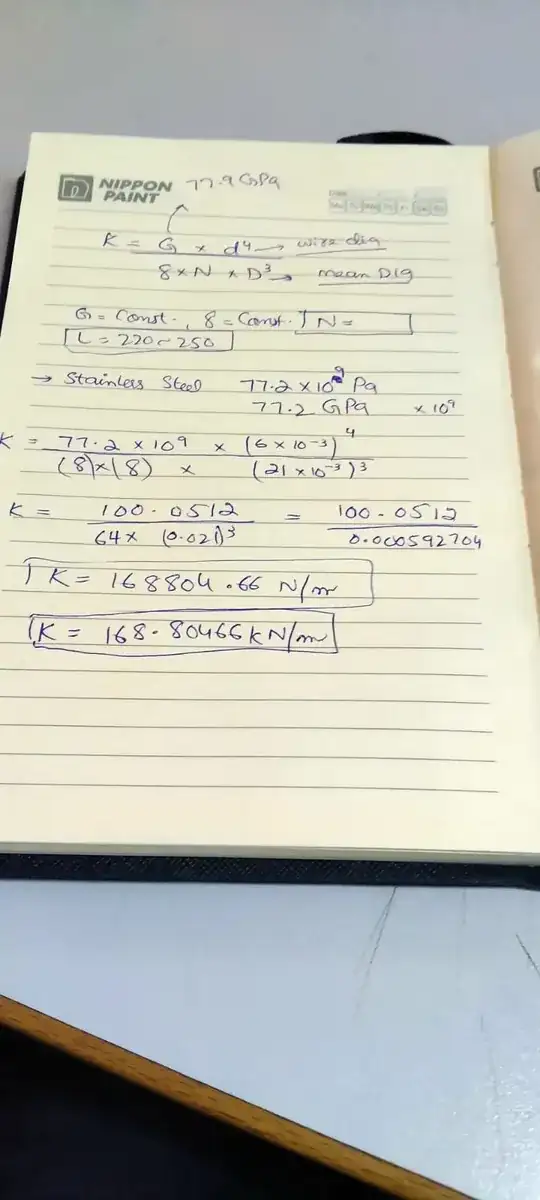 NIPPON PAINT 77.9 GPa
K = G × d⁴ → wire dia
8 × N × D³ → mean DIG
G = Const., 8 = Const. N =
L = 220 ~ 250
→ Stainless Steel 77.2 × 10⁹ Pa
77.2 GPa × 10⁹
K = 77.2 × 10⁹ × (6 × 10⁻³)⁴
(8) × (8) × (21 × 10⁻³)³
K = 100.0512 = 100.0512
64 × (0.021)³ 0.000592704
K = 168804.66 N/m
K = 168.80466 kN/m